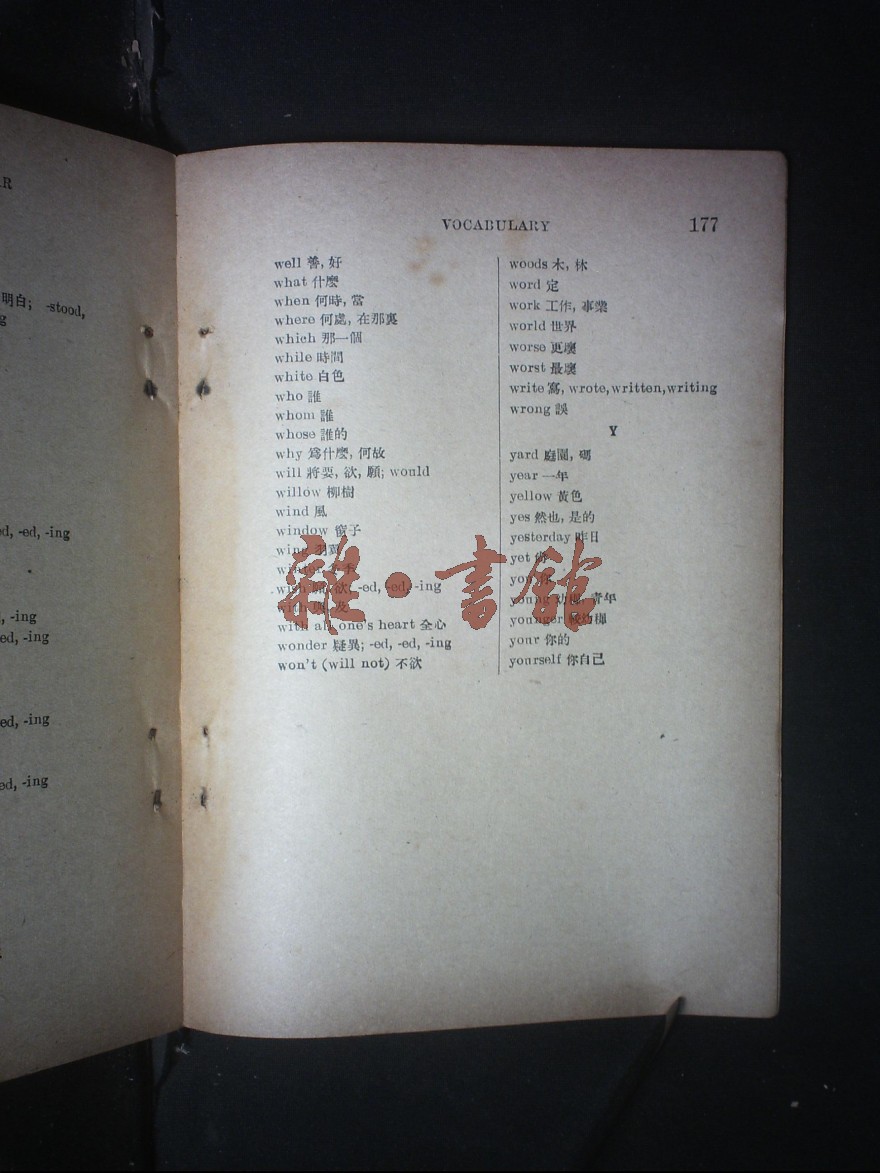 R
明白; -stood,
g
ed, -ed, -ing
-ing
ed, -ing
ed, -ing
ed, -ing
VOCABULARY 177
well 善, 好
what 什麼
when 何時, 當
where 何處, 在那裏
which 那一個
while 時間
white 白色
who 誰
whom 誰
whose 誰的
why 爲什麼, 何故
will 將要, 欲, 願; would
willow 柳樹
wind 風
window 窗子
wing 羽翼
winter
wish 欲; -ed, -ed, -ing
with 及
with all one's heart 全心
wonder 疑異; -ed, -ed, -ing
won't (will not) 不欲
woods 木, 林
word 定
work 工作, 事業
world 世界
worse 更壞
worst 最壞
write 寫, wrote, written, writing
wrong 誤
Y
yard 庭園, 碼
year 一年
yellow 黃色
yes 然也, 是的
yesterday 昨日
yet
you 你
young 青年
younger
your 你的
yourself 你自己
雜·書館